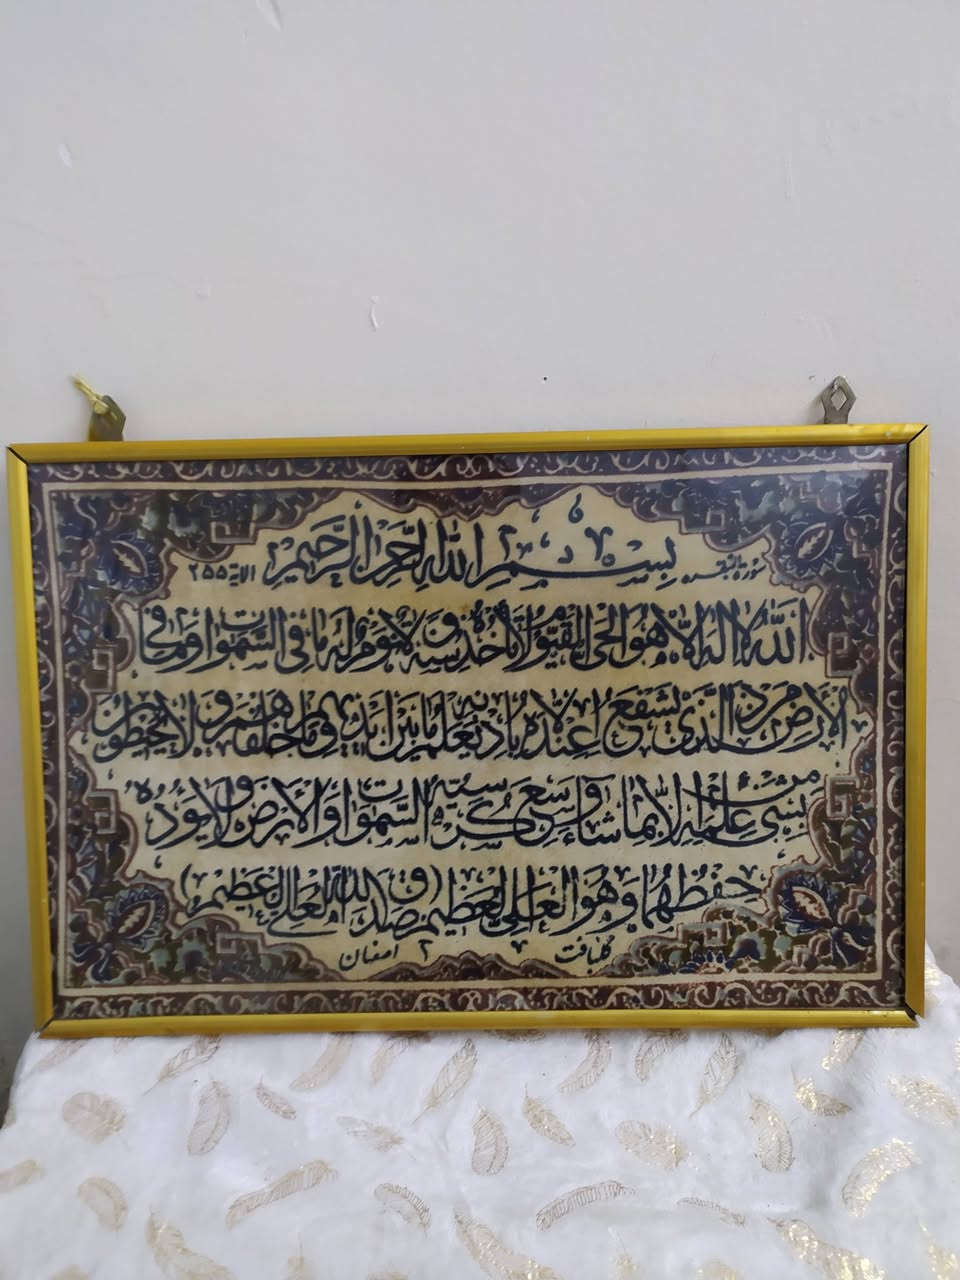 سورة البقره بسم الله الرحمن الرحيم الاية ٢٥٥
الله لا اله الا هو الحى القيوم لا تأخذه سنة ولا نوم له ما فى السموات وما فى
الارض من ذ الذى يشفع عنده الا باذنه يعلم ما بين ايديهم وما خلفهم ولا يحيطون
بشىء من علمه الا بما شاء وسع كرسيه السموات والارض ولا يؤده
حفظهما وهو العلى العظيم (صدق الله العلى العظيم)
گلبافت اصفهان